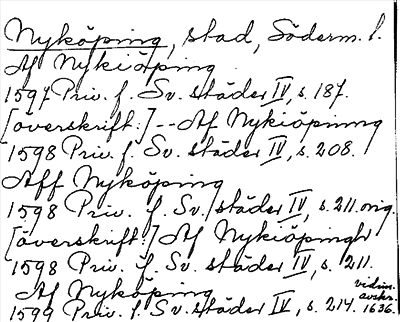 Nyköping, stad, Söderm. l.
Af Nykiöping
1597 Priv. f. Sv. städer IV, s. 187.
[överskrift:] -- Af Nykiöpinng
1598 Priv. f. Sv. städer IV, s. 208.
Aff Nyköping
1598 Priv. f. Sv. städer IV, s. 211. orig.
[överskrift:] Af Nykiöpingh
1598 Priv. f. Sv. städer IV, s. 211.
Af Nyköping vidim.
avskr.
1599 Priv. f. Sv. städer IV, s. 214. 1636.